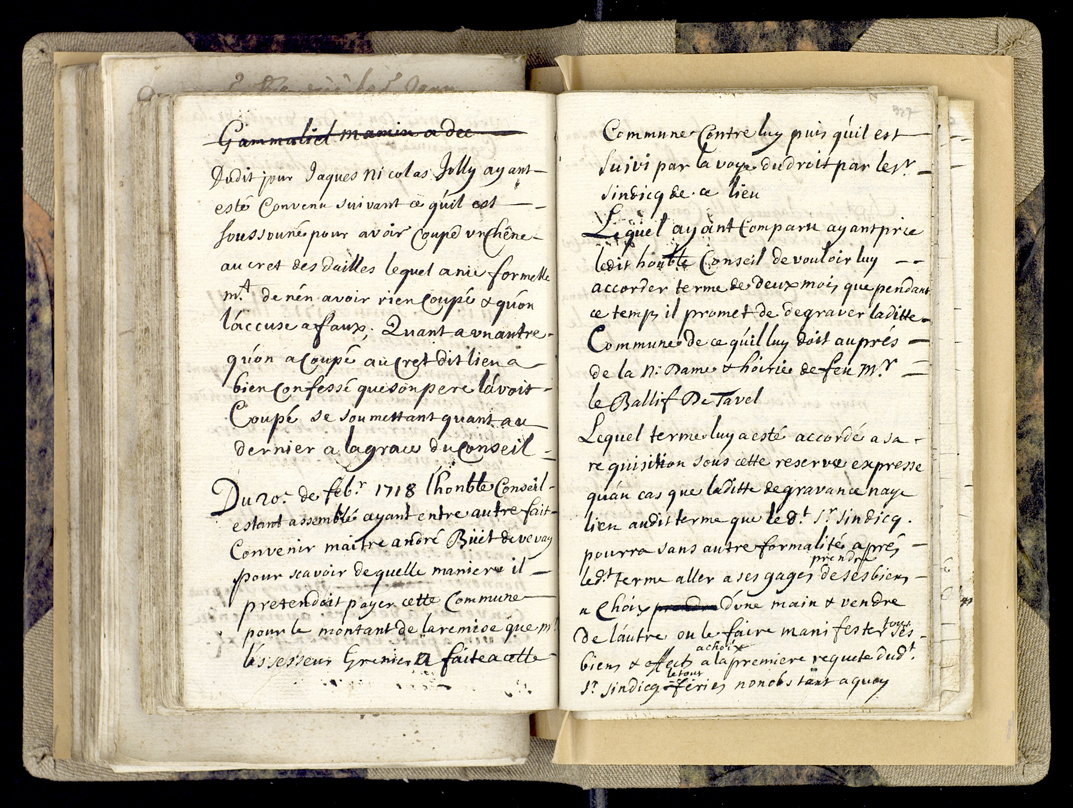 Gammaliel mamin a dec
Dudit jour Jaques nicolas Jolly ayant
esté Convenu suivant ce qu'il est
soussouné pour avoir Coupé vn Chêne
au cret des dailles lequel a nié formelle
mt. de n'en avoir rien Coupé & qu'on
l'accuse a faux. Quant a vn autre
qu'on a Coupé au Cret dit lieu a
bien Confessé que son pere l'avoit
Coupé se soumettant quant au
dernier a la grace du Conseil
Du 20e. de febr. 1718 l'honble Conseil
estant assemblé ayant entre autre fait
Convenir maitre andré Buët de vevay
pour scavoir de quelle maniere il
pretendoit payer cette Commune
pour le montant de la remise que mr.
l'assesseur Grenier a faite a cette
327
Commune Contre luy puis qu'il est
suivi par la voye du droit par le sr.
sindicq de ce lieu
Lequel ayant Comparu ayant prié
ledit honble Conseil de vouloir luy
accorder terme de deux mois que pendant
ce temps il promet de degraver laditte
Commune de ce qu'il luy doit auprés
de la N: Dame & hoirie de feu mr.
le Ballif De Tavel
Lequel terme luy a esté accordé a sa
requisition sous cette reserve expresse
qu'au cas que laditte degravance n'aye
lieu audit terme que le dt. sr. sindicq
pourra sans autre formalité aprés
prendre
ledt. terme aller a ses gages de ses biens
a Choix prendre d'vne main & vendre
De l'autre ou le faire manifester tous ses
a choix
biens & effects a la premiere requete dudt.
le tour
sr. sindicq feries nonobstant a quoy